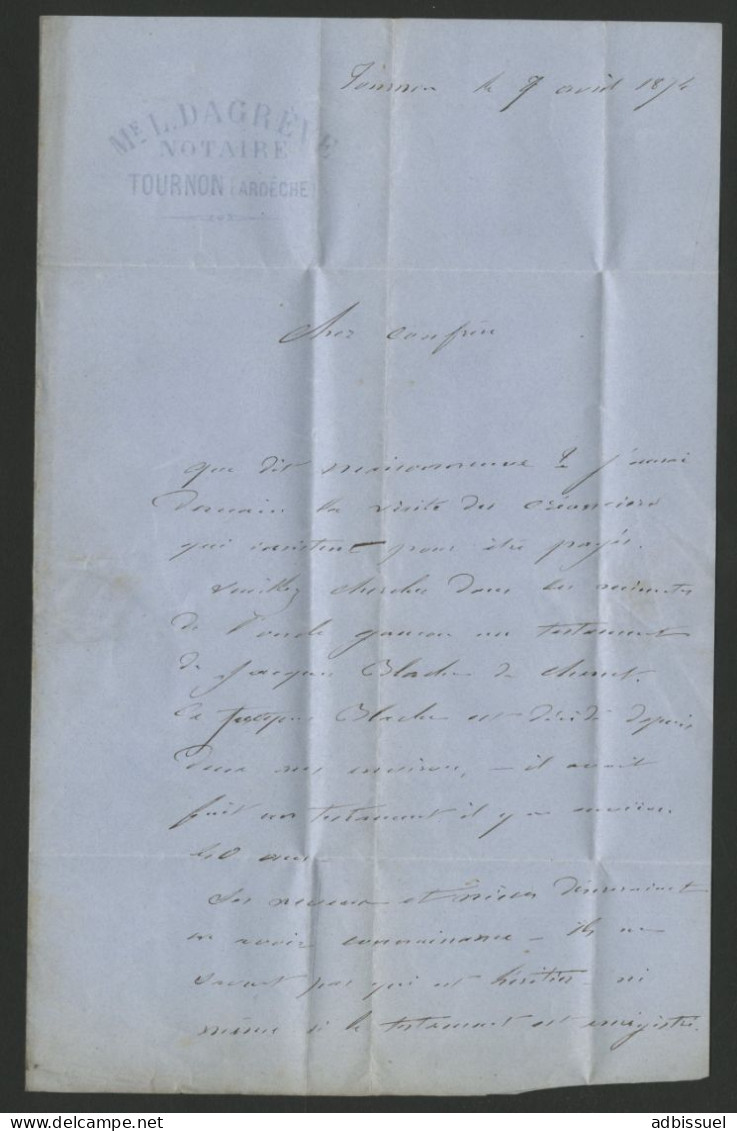 Me L. DAGRÈVE
NOTAIRE
TOURNON (ARDÈCHE)
Tournon le 9 avril 1874
Cher confrère
que dit ? j'aurai
demain la visite des créanciers
qui insistent pour être payés.
Veuillez chercher dans les minutes
de un testament
de Jacques Blache de
Ce Jacques Blache est décédé depuis
deux ans environ, - il avait
fait un testament il y a environ
40 ans
Ses neveux et nièces désireraient
en avoir connaissance - ils ne
savent pas qui est héritier - ni
même si le testament est enregistré.
adbissuel